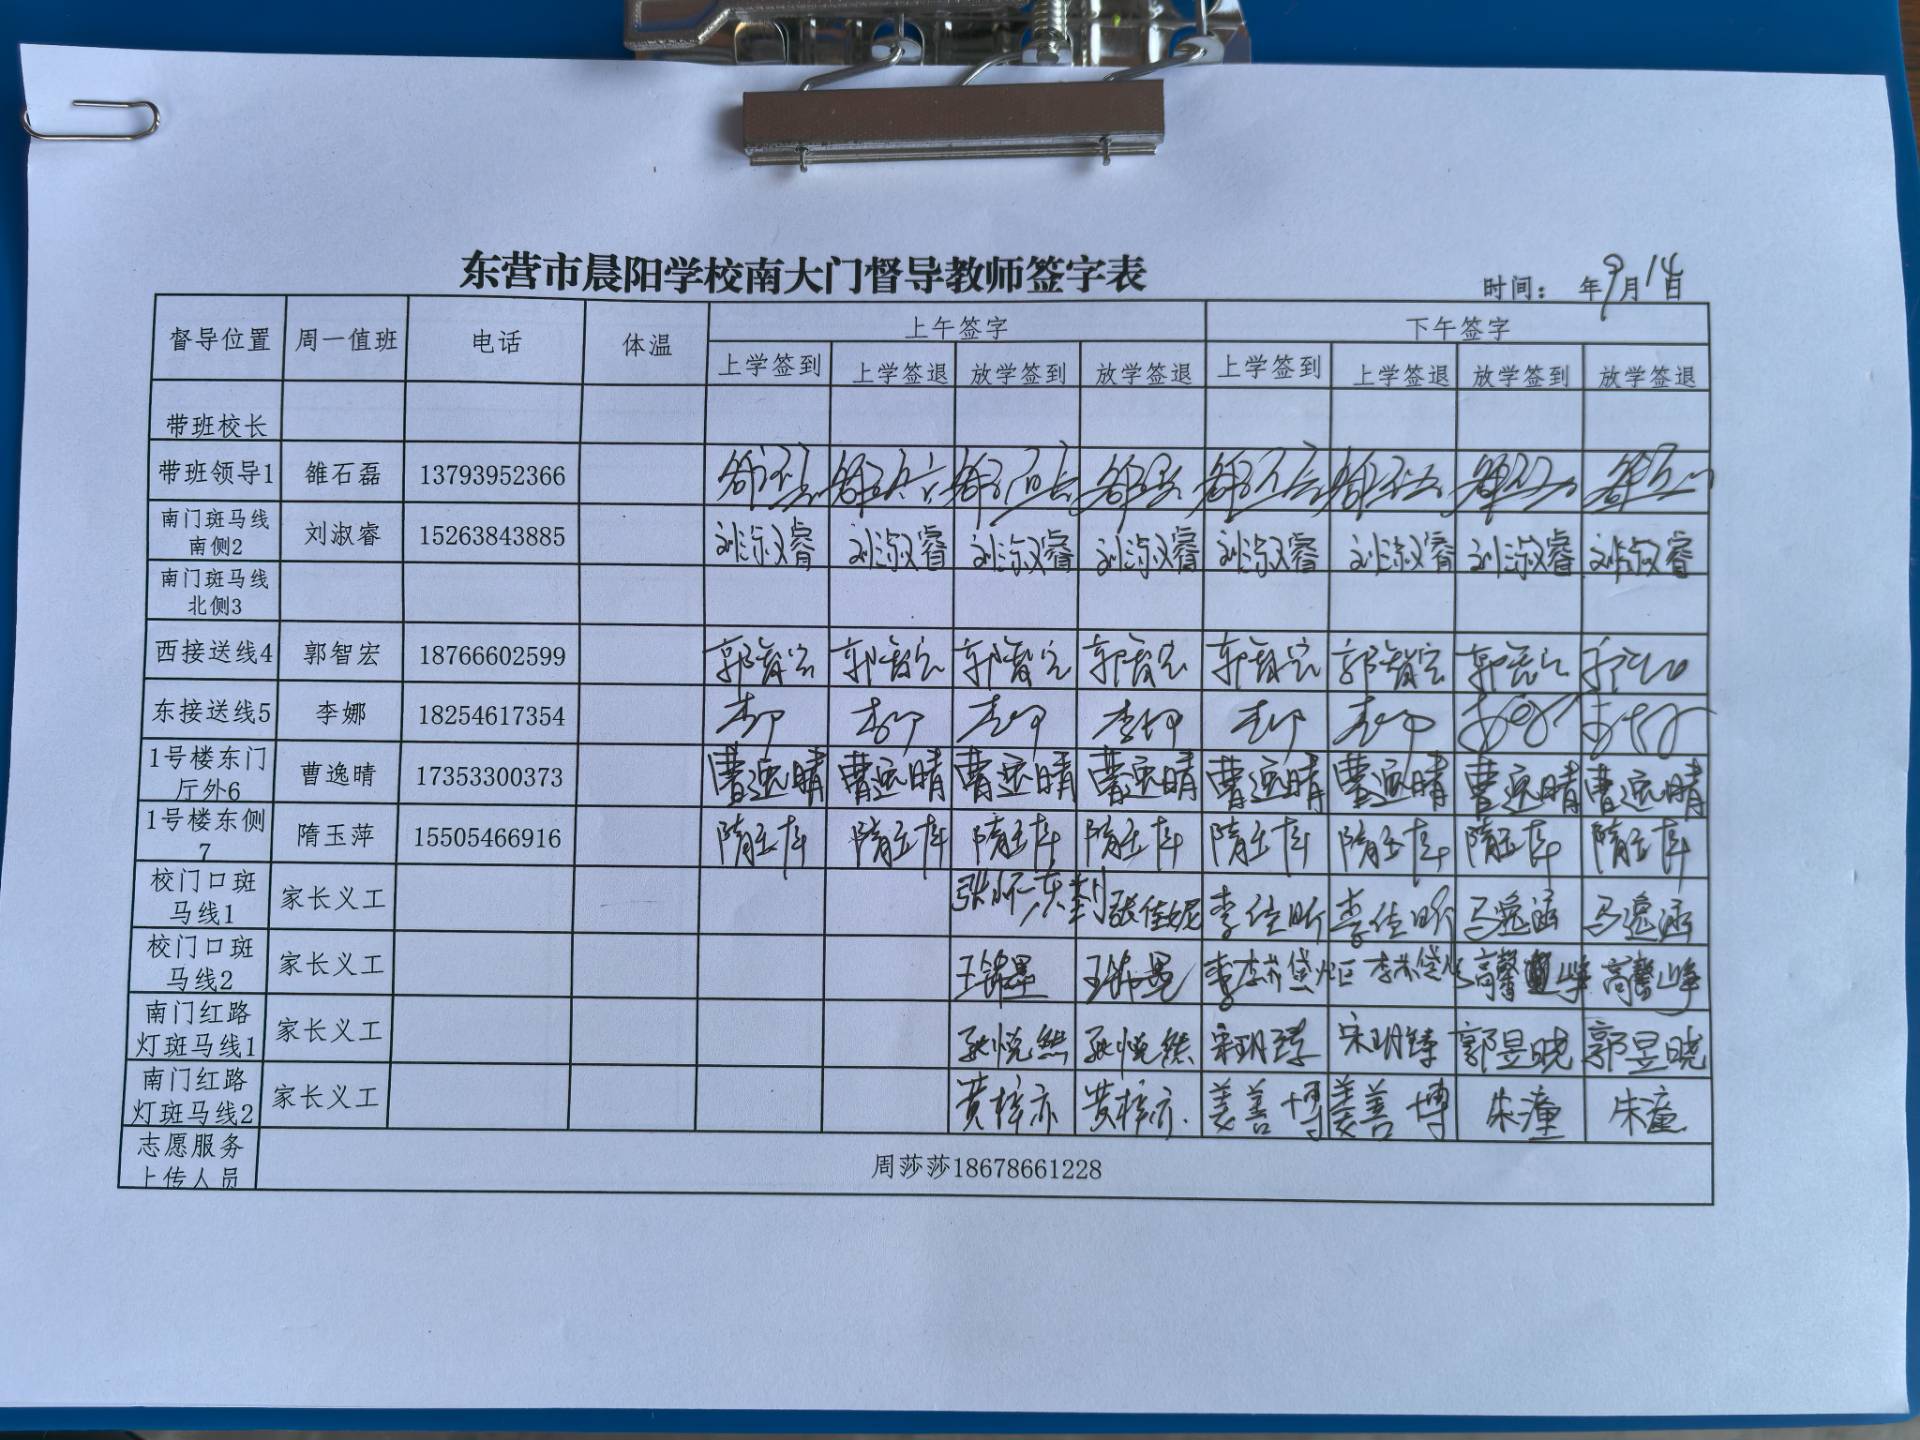 东营市晨阳学校南大门督导教师签字表
时间： 年9月14日
督导位置 周一值班 电话 体温 上午签字 下午签字
上学签到 上学签退 放学签到 放学签退 上学签到 上学签退 放学签到 放学签退
带班校长
带班领导1 雒石磊 13793952366
南门斑马线南侧2 刘淑睿 15263843885 刘淑睿 刘淑睿 刘淑睿 刘淑睿 刘淑睿 刘淑睿 刘淑睿 刘淑睿
南门斑马线北侧3
西接送线4 郭智宏 18766602599 郭智宏 郭智宏 郭智宏 郭智宏 郭智宏 郭智宏
东接送线5 李娜 18254617354 李娜 李娜 李娜 李娜 李娜 李娜
1号楼东门厅外6 曹逸晴 17353300373 曹逸晴 曹逸晴 曹逸晴 曹逸晴 曹逸晴 曹逸晴 曹逸晴 曹逸晴
1号楼东侧7 隋玉萍 15505466916 隋玉萍 隋玉萍 隋玉萍 隋玉萍 隋玉萍 隋玉萍 隋玉萍 隋玉萍
校门口斑马线1 家长义工 张佳妮 李佳昕 李佳昕 马逸涵 马逸涵
校门口斑马线2 家长义工 高馨峥
南门红路灯斑马线1 家长义工 孙悦然 孙悦然 宋玥臻 宋玥臻 郭昱晓 郭昱晓
南门红路灯斑马线2 家长义工 黄梓亦 黄梓亦 姜善博 姜善博 朱潼 朱潼
志愿服务上传人员 周莎莎18678661228